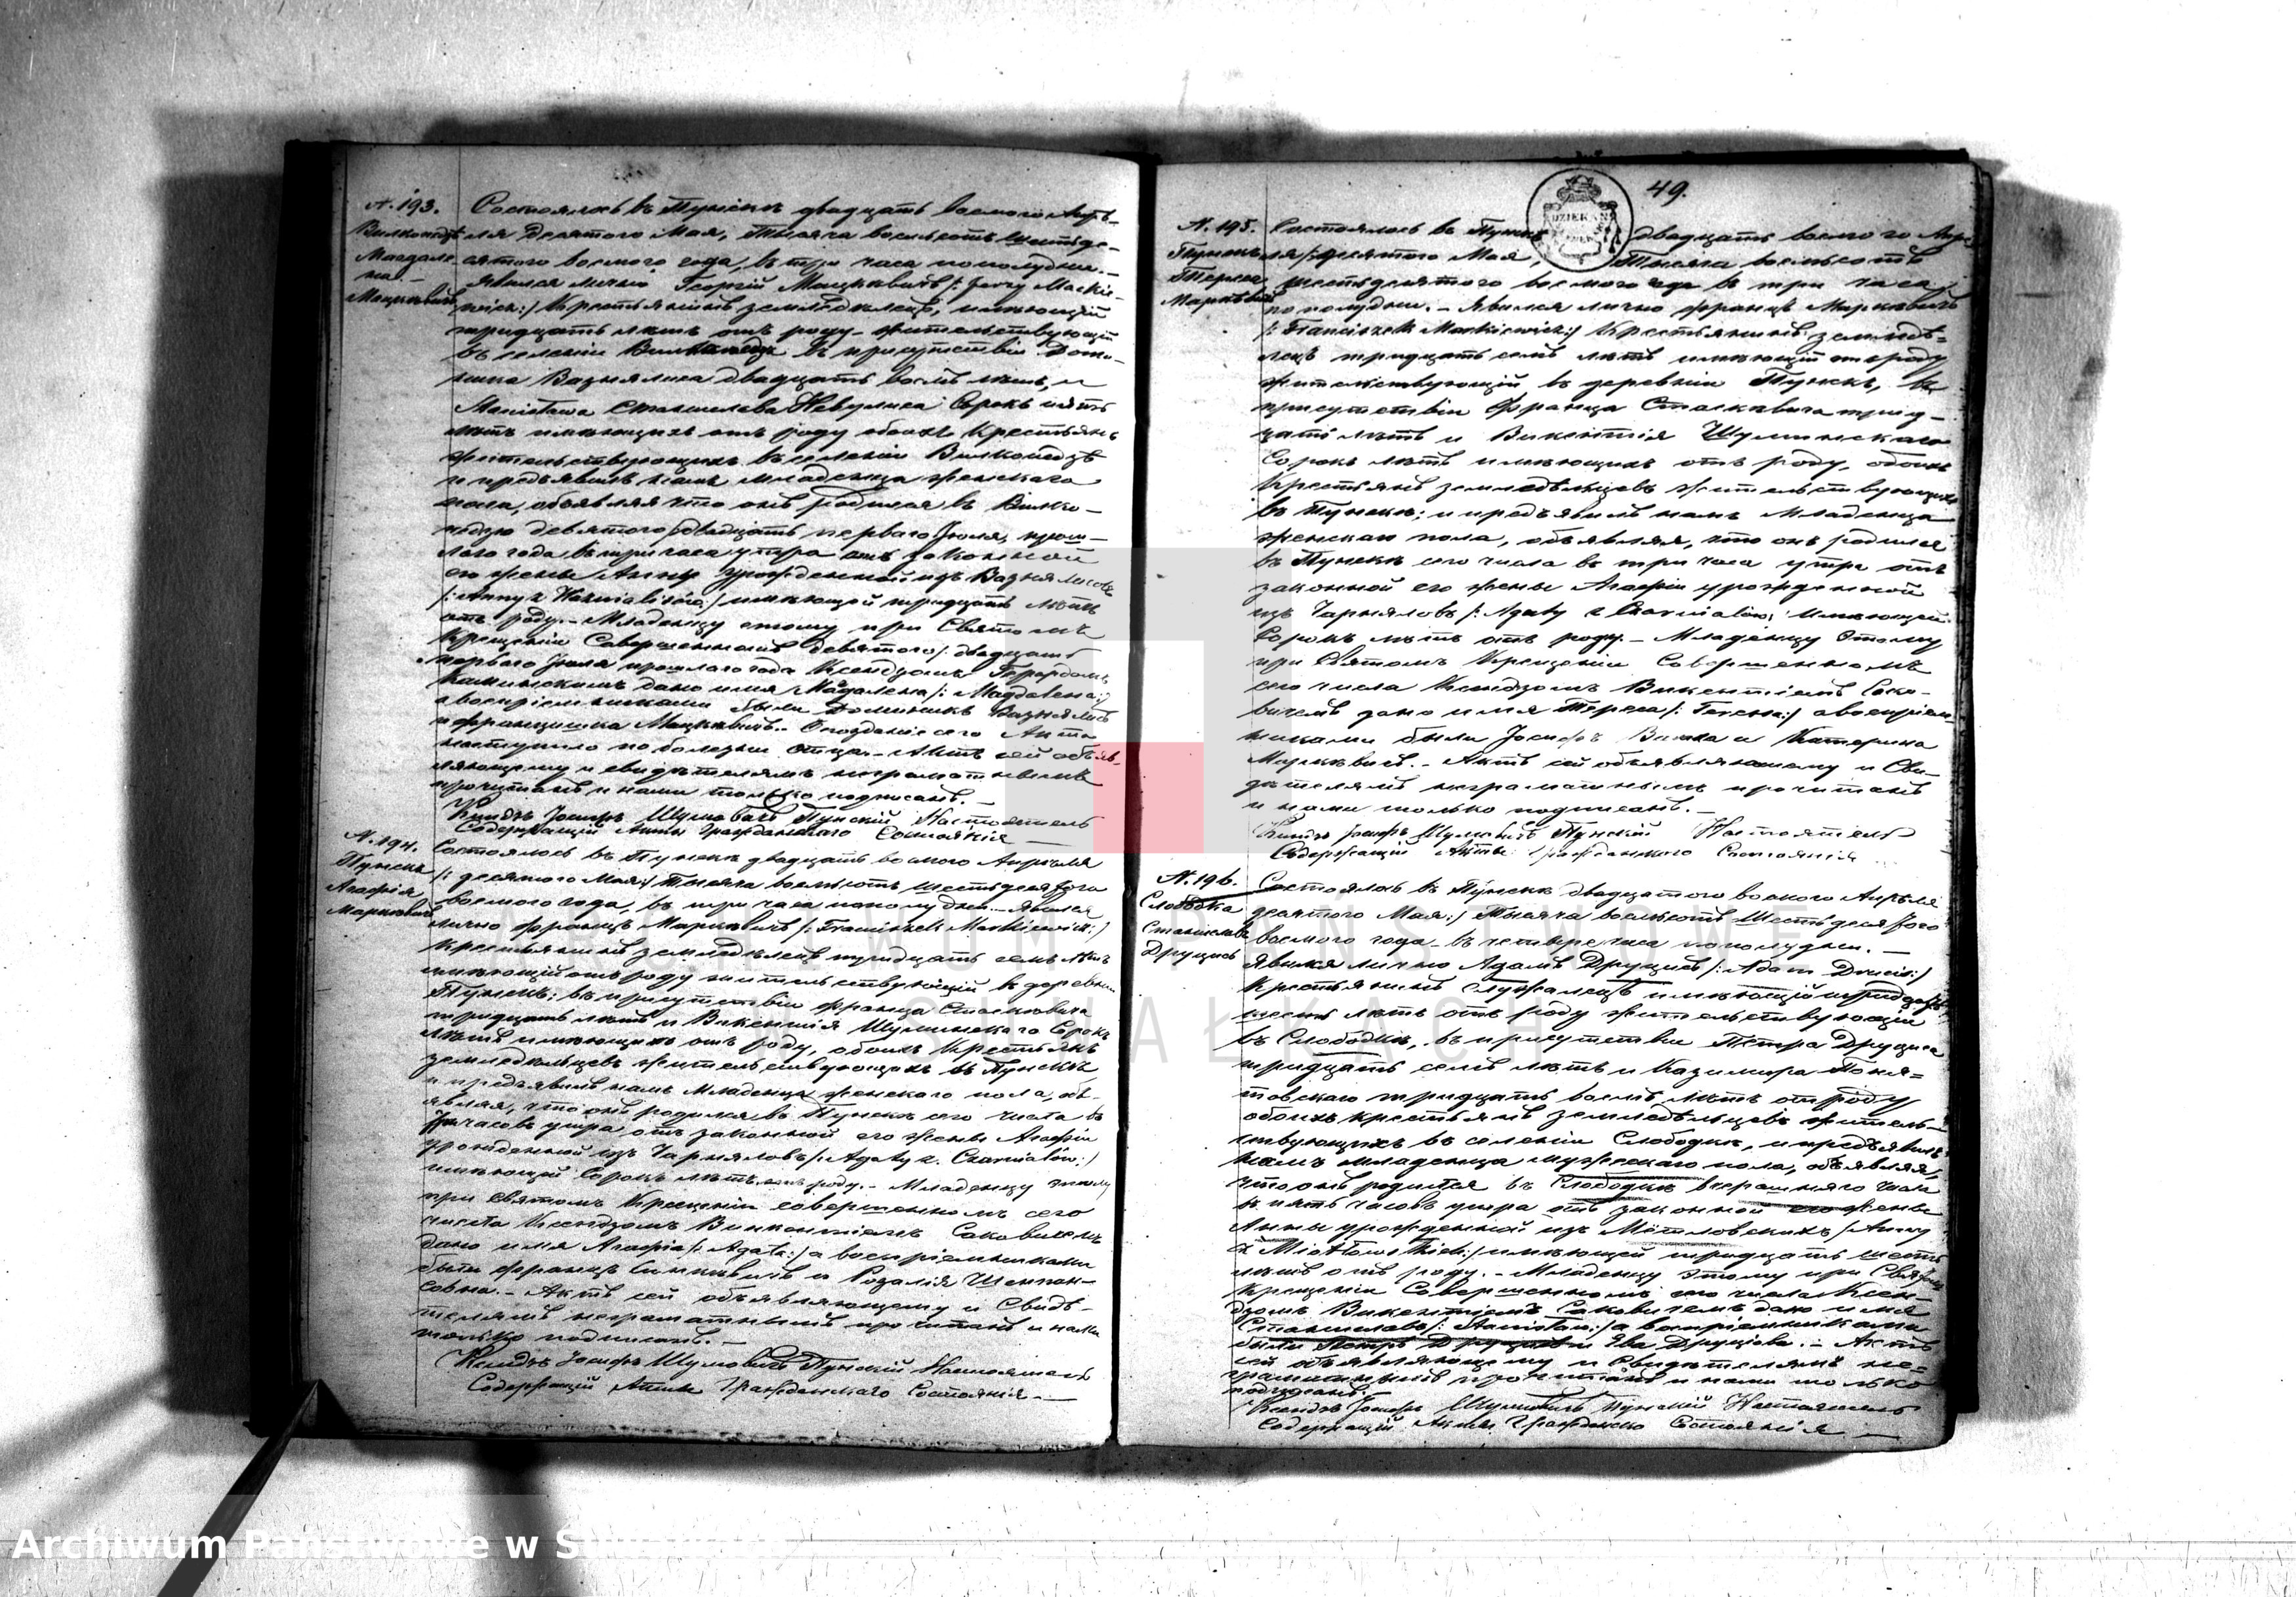 N. 193.
Вилкопедзъ
Магдале-
на
Мацкевичъ
Состоялось въ Пунскѣ двадцать восьмого Апрѣ-
ля десятого Мая, тысяча восемьсотъ шестьде-
сятого восьмого года, въ три часа пополудни. –
Явился лично Георгій Мацкевичъ /: Jerzy Mackie-
wicz :/ Крестьянинъ земледѣлецъ, имѣющій
тридцать лѣтъ отъ роду – жительствующій
въ селеніи въ присутствіи Доми-
ника Вазнялиса двадцать восемь лѣтъ, и
Станислава Невулиса Сорокъ пять
лѣтъ имѣющихъ отъ роду обоихъ Крестьянъ
жительствующихъ въ селеніи Вилкопедзѣ
и предъявилъ намъ младенца женскаго
пола, объявляя что онъ родился въ Вилко-
педзю девятого /двадцать перваго Іюля, прош-
лого года въ три часа утра отъ законной
его жены Анны урожденной изъ Вазнялисовъ
/: Anny z Waznialisów :/ имѣющей тридцать лѣтъ
отъ роду. – Младенцу этому при Святомъ
Крещеніи Совершенномъ девятого /: двадцать
перваго Іюля прошлаго года Ксендзомъ
Каминскимъ дано имя Магдалена /: Magdalena :/
а воспріемниками были Доминикъ Вазнялисъ
и Францишка Мацкевичъ. – Опозданіе сего Акта
наступило по болѣзни отца. – Актъ сей объяв-
ляющему и свидѣтелямъ неграматнымъ
прочитанъ и нами только подписанъ. –
Ксендзъ Іосифъ Шумовичъ Пунскій Настоятель
Содержащій Акты Гражданскаго Состоянія
N. 194.
Пунскъ
Агафія
Маркевичъ
Состоялось въ Пунскѣ двадцать восьмого Апрѣля
/: десятого Мая :/ тысяча восемьсотъ шестьдесятого
восьмого года, въ три часа пополудни. – Явился
лично Францъ Маркевичъ /: Franciszek Markiewicz :/
Крестьянинъ земледѣлецъ тридцать семь лѣтъ
имѣющій отъ роду жительствующій въ деревни
Пунскъ; въ присутствіи Франца Стаскевича
тридцать лѣтъ и Викентія Шулинскаго Сорокъ
лѣтъ имѣющихъ отъ роду, обоихъ Крестьянъ
земледѣльцевъ жительствующихъ въ Пунскѣ
и предъявилъ намъ младенца женского пола, объ-
являя, что онъ родился въ Пунскѣ сего числа въ
часовъ утра отъ законной его жены Агафіи
урожденной изъ Чарняловъ /: Agaty z Czarnialów :/
имѣющей Сорокъ лѣтъ отъ роду. – Младенцу этому
при Святомъ Крещеніи совершенномъ сего
числа Ксендзомъ Викентіемъ Саковичемъ
дано имя Агафія /: Agata :/ а воспріемниками
были Францъ и Розалія
Актъ сей объявляющему и Свидѣ-
телямъ неграматнымъ прочитанъ и нами
только подписанъ. –
Ксендзъ Іосифъ Шумовичъ Пунскій Настоятель
Содержащій Акты Гражданскаго Состоянія. –
49.
DZIEKAN
N. 195.
Пунскъ
Тереса
Маркевичъ
Состоялось въ Пунскѣ двадцать восьмого Апрѣ-
ля /: десятого Мая, тысяча восемьсотъ
шестьдесятого восьмого года въ три часа
по полудни. – Явился лично Францъ Маркевичъ
/: Franciszek Markiewicz :/ Крестьянинъ земледѣ-
лецъ тридцать семь лѣтъ имѣющій отъ роду
жительствующій въ деревни Пунскъ, въ
присутствіи Франца Стаскевича трид-
цать лѣтъ и Викентія Шулинскаго
Сорокъ лѣтъ имѣющихъ отъ роду, обоихъ
Крестьянъ земледѣльцевъ жительствующихъ
въ Пунскѣ; и предъявилъ намъ младенца
женскаго пола, объявляя, что онъ родился
въ Пунскѣ сего числа въ три часа утра отъ
законной его жены Агафіи урожденной
изъ Чарняловъ /: Agaty z Czarnialów; имѣющей
Сорокъ лѣтъ отъ роду. – Младенцу Этому
при Святомъ Крещеніи Совершенномъ
сего числа Ксендзомъ Викентіемъ Сако-
вичемъ дано имя Тереса /: Teressa :/ а воспріем-
никами были Іосифъ и Катерина
Маркевичъ. – Актъ сей объявляющему и Сви-
дѣтелямъ неграматнымъ прочитанъ
и нами только подписанъ. –
Ксендзъ Іосифъ Шумовичъ Пунскій Настоятель
Содержащій Акты Гражданского Состоянія
N. 196.
Слободка
Станиславъ
Друцисъ
Состоялось въ Пунскѣ двадцатого восьмого Апрѣля
десятого Мая :/ тысяча восемьсотъ шестьдесятого
восьмого года въ четыре часа пополудни. –
Явился лично Адамъ Друцисъ /: Adam Drucis :/
Крестьянинъ имѣющій тридцать
шесть лѣтъ отъ роду жительствующій
въ Слободкѣ, въ присутствіи Петра Друциса
тридцать семь лѣтъ и Казимира Поня-
товскаго тридцать восемь лѣтъ отъ роду
обоихъ крестьянъ земледѣльцевъ житель-
ствующихъ въ селеніи Слободкѣ, и предъявилъ
намъ младенца мужескаго пола, объявляя,
что онъ родился въ Слободкѣ вчерашняго числа
въ пять часовъ утра отъ законной его жены
Анны урожденной изъ Мётловскихъ /: Anny
z Miotłowskich :/ имѣющей тридцать шесть
лѣтъ отъ роду. – Младенцу этому при Святомъ
Крещеніи Совершенномъ сего числа Ксен-
дзомъ Викентіемъ Саковичемъ дано имя
Станиславъ /: Stanisław :/ а воспріемниками
были Петръ Друцисъ и Ева Друцисова. – Актъ
сей объявляющему и Свидѣтелямъ не-
граматнымъ прочитанъ и нами только
подписанъ. –
Ксендзъ Іосифъ Шумовичъ Пунскій Настоятель
Содержащій Акты Гражданско Состоянія. –
ARCHIWUM PAŃSTWOWE
W SUWAŁKACH
Archiwum Państwowe w